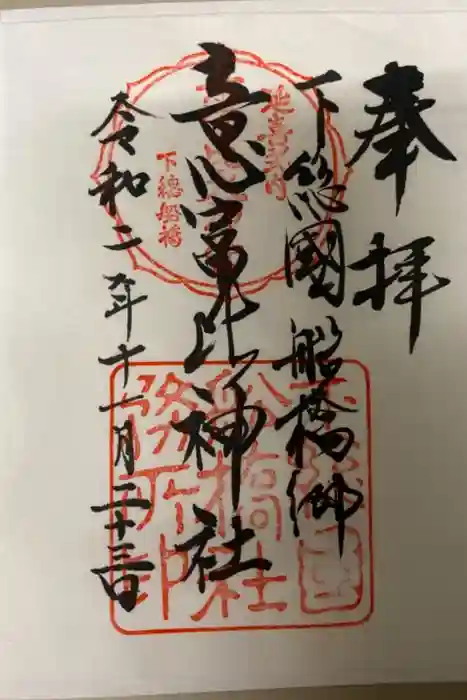 奉拝
下総國船橋郷
意富比神社
令和二年十一月二十三日
延喜式内
下總船橋
船橋社
務所印